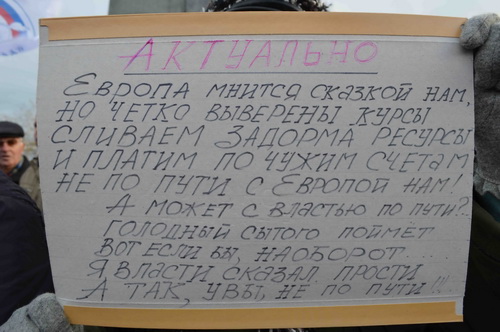 АКТУАЛЬНО
ЕВРОПА МНИТСЯ СКАЗКОЙ НАМ,
НО ЧЕТКО ВЫВЕРЕНЫ КУРСЫ
СЛИВАЕМ ЗАДОРМА РЕСУРСЫ
И ПЛАТИМ ПО ЧУЖИМ СЧЕТАМ
НЕ ПО ПУТИ С ЕВРОПОЙ НАМ!
А МОЖЕТ С ВЛАСТЬЮ ПО ПУТИ?..
ГОЛОДНЫЙ СЫТОГО ПОЙМЁТ
ВОТ ЕСЛИ БЫ, НАОБОРОТ....
Я ВЛАСТИ СКАЗАЛ ПРОСТИ
А ТАК, УВЫ, НЕ ПО ПУТИ!!!